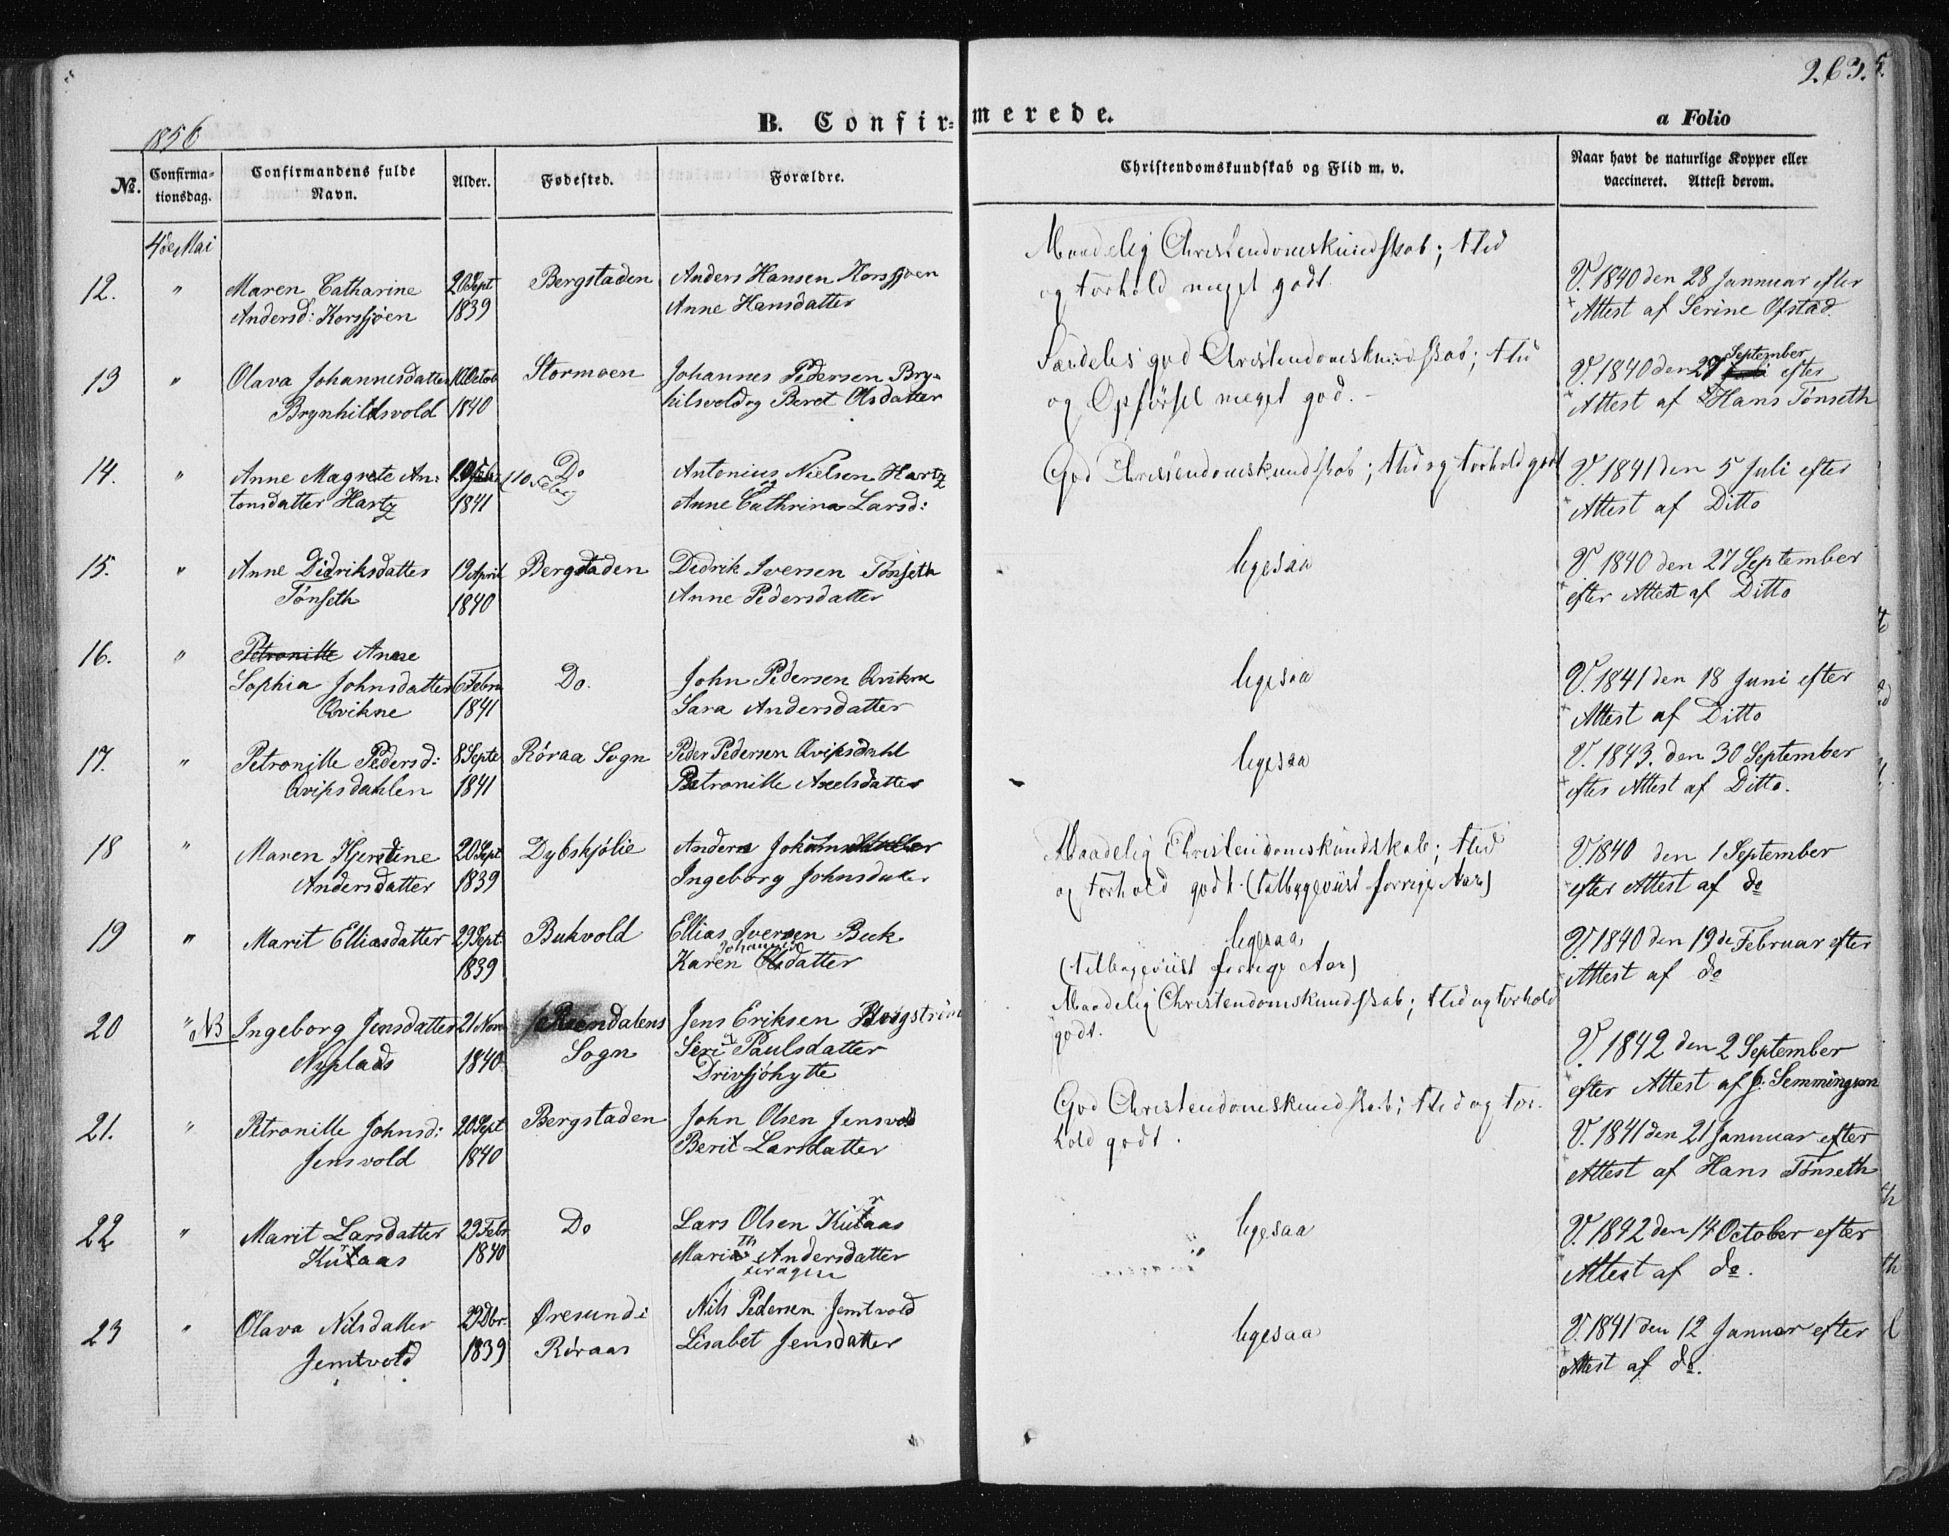 263.
1856
B. Confir=merede.
a Folio
No.
Confirma=
tionsdag.
Confirmandens fulde
Navn.
Alder.
Fødested.
Forældre.
Christendomskundskab og Flid m. v.
Naar havt de naturlige Kopper eller
vaccineret. Attest derom.
4de Mai
12. " Maren Catharine 20 Sept Bergstaden Anders Hansen Korssjøen Maadelig Christendomskundskab; Flid V. 1840 den 28 Januar efter
Andersd: Korssjøen 1839 Anne Hansdatter og Forhold meget godt. Attest af Serine Ofstad.
13 " Olava Johannesdatter 10 Octob Stormoen Johannes Pedersen Bry= Særdeles god Christendomskundskab; Flid V. 1840 den 27 September efter
Brynhildsvold 1840 hilsvold og Beret Olsdatter og Opførsel meget god. - Attest af Hans Tønseth
14. " Anne Magrete An: 1841 (10 Febr) Do Antonius Nielsen Hartz God Christendomskundskab; Flid og Forhold godt V. 1841 den 5 Juli efter
tonsdatter Hartz og Anne Cathrina Larsd: Attest af Ditto
15. " Anne Didriksdatter 19 April Bergstaden Didrik Iversen Tønseth ligesaa V 1840 den 27 September
Tønseth 1840 Anne Pedersdatter efter Attest af Ditto
16. " Petronille Anne
Sophia Johnsdatter 6 Febru Do. John Pedersen Qvikne ligesaa V. 1841 den 18 Juni efter
Qvikne 1841 Sara Andersdatter Attest af Ditto
17. " Petronille Pedersd: 8 Septe Røraa Sogn Peder Pedersen Qvipsdahl ligesaa V. 1843. den 30 September
Qvipsdahlen 1841 Petronille Axelsdatter efter Attest af Ditto.
18 " Maren Kjerstine 20 Sept Dybskjølie Anders Maadelig Christendomskundskab; Flid V 1840 den 1 September
Andersdatter 1839 Ingeborg Johnsdatter og Forhold godt. (tilbageviist forrige Aar) efter Attest af do
19 " Marit Elliasdatter 29 Sept Bukvold Ellias Iversen Buk ligesaa V. 1840 den 19de Februar efter
1839 Karen Johannesdatter (tilbageviist forrige Aar) Attest af do
20 " NB Ingeborg Jensdatter 21 Nov Reendalens Jens Eriksen Bergstrøm Maadelig Christendomskundskab; Flid og Forhold
Nyplads 1840 Sogn Siri Paulsdatter godt. V. 1842 den 2 September
Drivsjøhytte efter Attest af P. Semmingsen
21. " Petronille Johnsd: 20 Sept Bergstaden John Olsen Jensvold God Christendomskundskab; Flid og For= V. 1841 den 21 Januar efter
Jensvold 1840 Berit Larsdatter hold godt. Attest af Hans Tønseth
22 " Marit Larsdatter 29 Febr Do Lars Olsen Kuraas ligesaa V. 1842 den 14 October efter
Kuraas 1840 Marith Andersdatter Attest af do.
23 " Olava Nilsdatter 29 Dbr. Øresund i Nils Pedersen Jemtvold ligesaa V. 1841 den 12 Januar efter
Jemtvold 1839 Røraas Lisabet Jensdatter Attest af do.